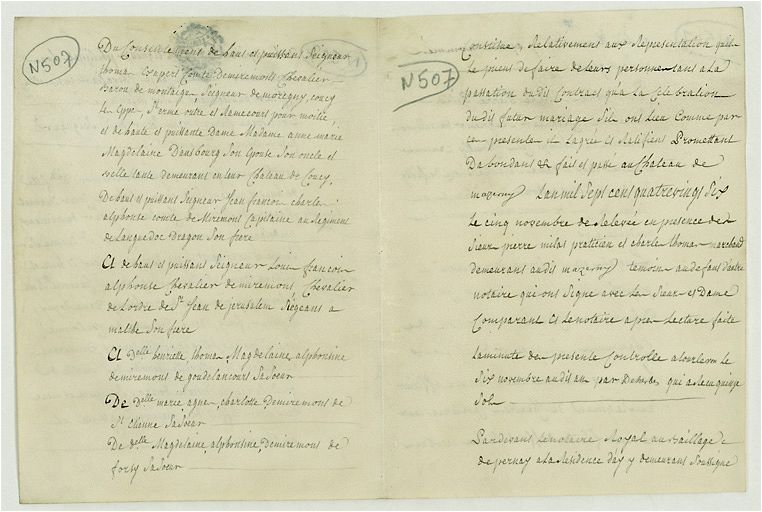 N507
Du Consentement de haut et puissant Seigneur
thoma Coupert Comte Demiremont Chevalier
Baron de montaigu Seigneur de mozegny, coucy
le Eppe, St erme outre et Ramecourt pour moitie,
et de haute et puissante Dame Madame anne marie
Magdelaine Dansbourg Son Epouse Son oncle et
belle tante demeurant en leur Chateau de Coucy,
De haut et puissant Seigneur Jean francois charle
alphonse comte de Miremont Capitaine au Regiment
de Languedoc Dragon Son frere
Et de haut et puissant Seigneur Louis francois
alphonse Chevalier de miremont Chevalier
de Lordre de St Jean de jerusalem Siegeant a
malthe Son frere
Et Delle henriette thoma Magdelaine, alphonsine
demiremont de goudelancourt Sa Soeur
De Delle marie agne, charlotte Demiremont de
St Etienne Sa Soeur
De delle Magdelaine, alphonsine, Demiremont de
forty Sa Soeur
N507
Constitue, Relativement aux Representation quil
Le prient de faire de leurs personnes tant a La
passation dudit Contract qu'a La Celebration
du dit futur mariage Sil ont lieu Comme par
ce presente il Lagree et Ratifient Promettant
Dabondant & fait et passé au Chateau de
mazerny Lan mil Sept cent quatrevingt Six
Le cinq novembre de Relevée en presence de
Sieur pierre milot praticien et charle thoma marchand
demeurant audit mazerny temoin au defaut dautre
notaire qui ont Signé avec Les Sieur et Dame
Comparant et Le notaire apre Lecture faite
La minute de presente Controlle a
Six novembre audit an par qui a recu quinze
Sols
Pardevant Le notaire Royal au Baillage de
depernay a La Residence day y demeurant Soussigné